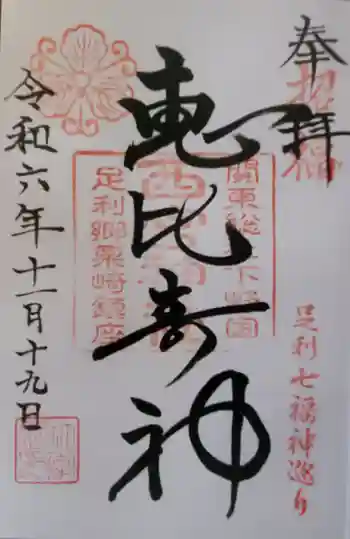 奉拝
招福
足利七福神巡り
恵比寿神
関東総社下野国
西宮神社
足利郷栗崎鎮座
令和六年十一月十九日